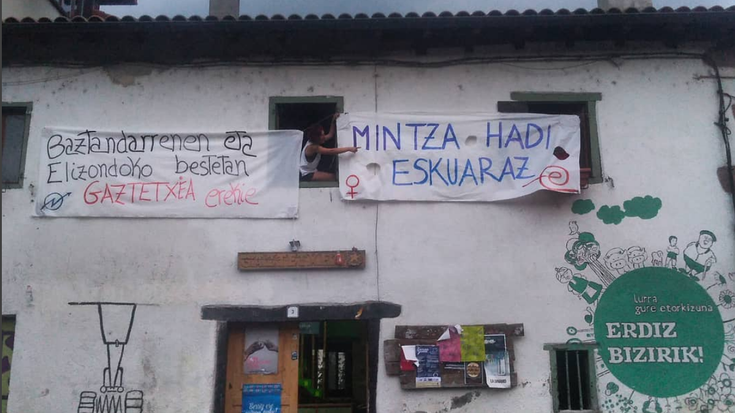 Baztandarrenen eta
Elizondoko bestetan
GAZTETXEA erekie
MINTZA HADI
ESKUARAZ
lurra
gure etorkizuna
ERDIZ
BIZIRIK!